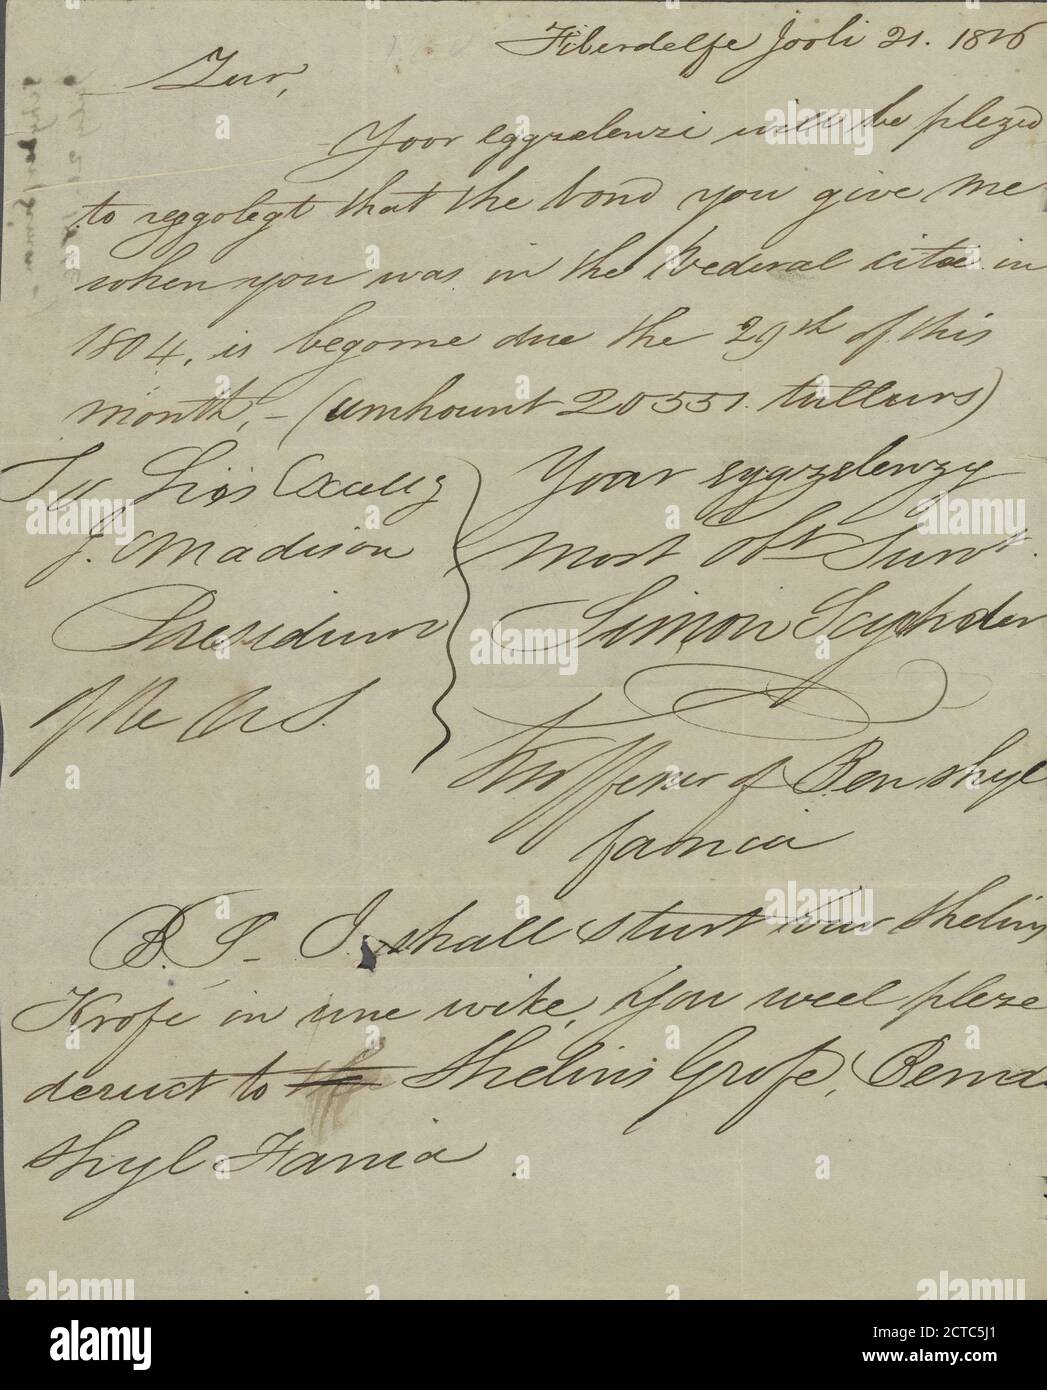 Fiberdelfe Jooli 21. 1816
Zur,
Yoor eggzelenzi will be plezd
to reggolegt that the bond you give me
when you was in the Federal citee in
1804, is begome due the 29th of this
month, - (umhount 20551. tullurs)
To His Excellz
J. Madison
Presidium
of the U S.
Yoor eggzelenzy
most Obt Survt.
Simon Scyhder
Kuffener of Benshyl
fania
B. S - I shall sturt vur Shelins
Krofe in une wike, You weel pleze
deruct to Shelins Grofe, Benn
shyl Fania.
alamy
Image ID: 2CTC5J1
www.alamy.com